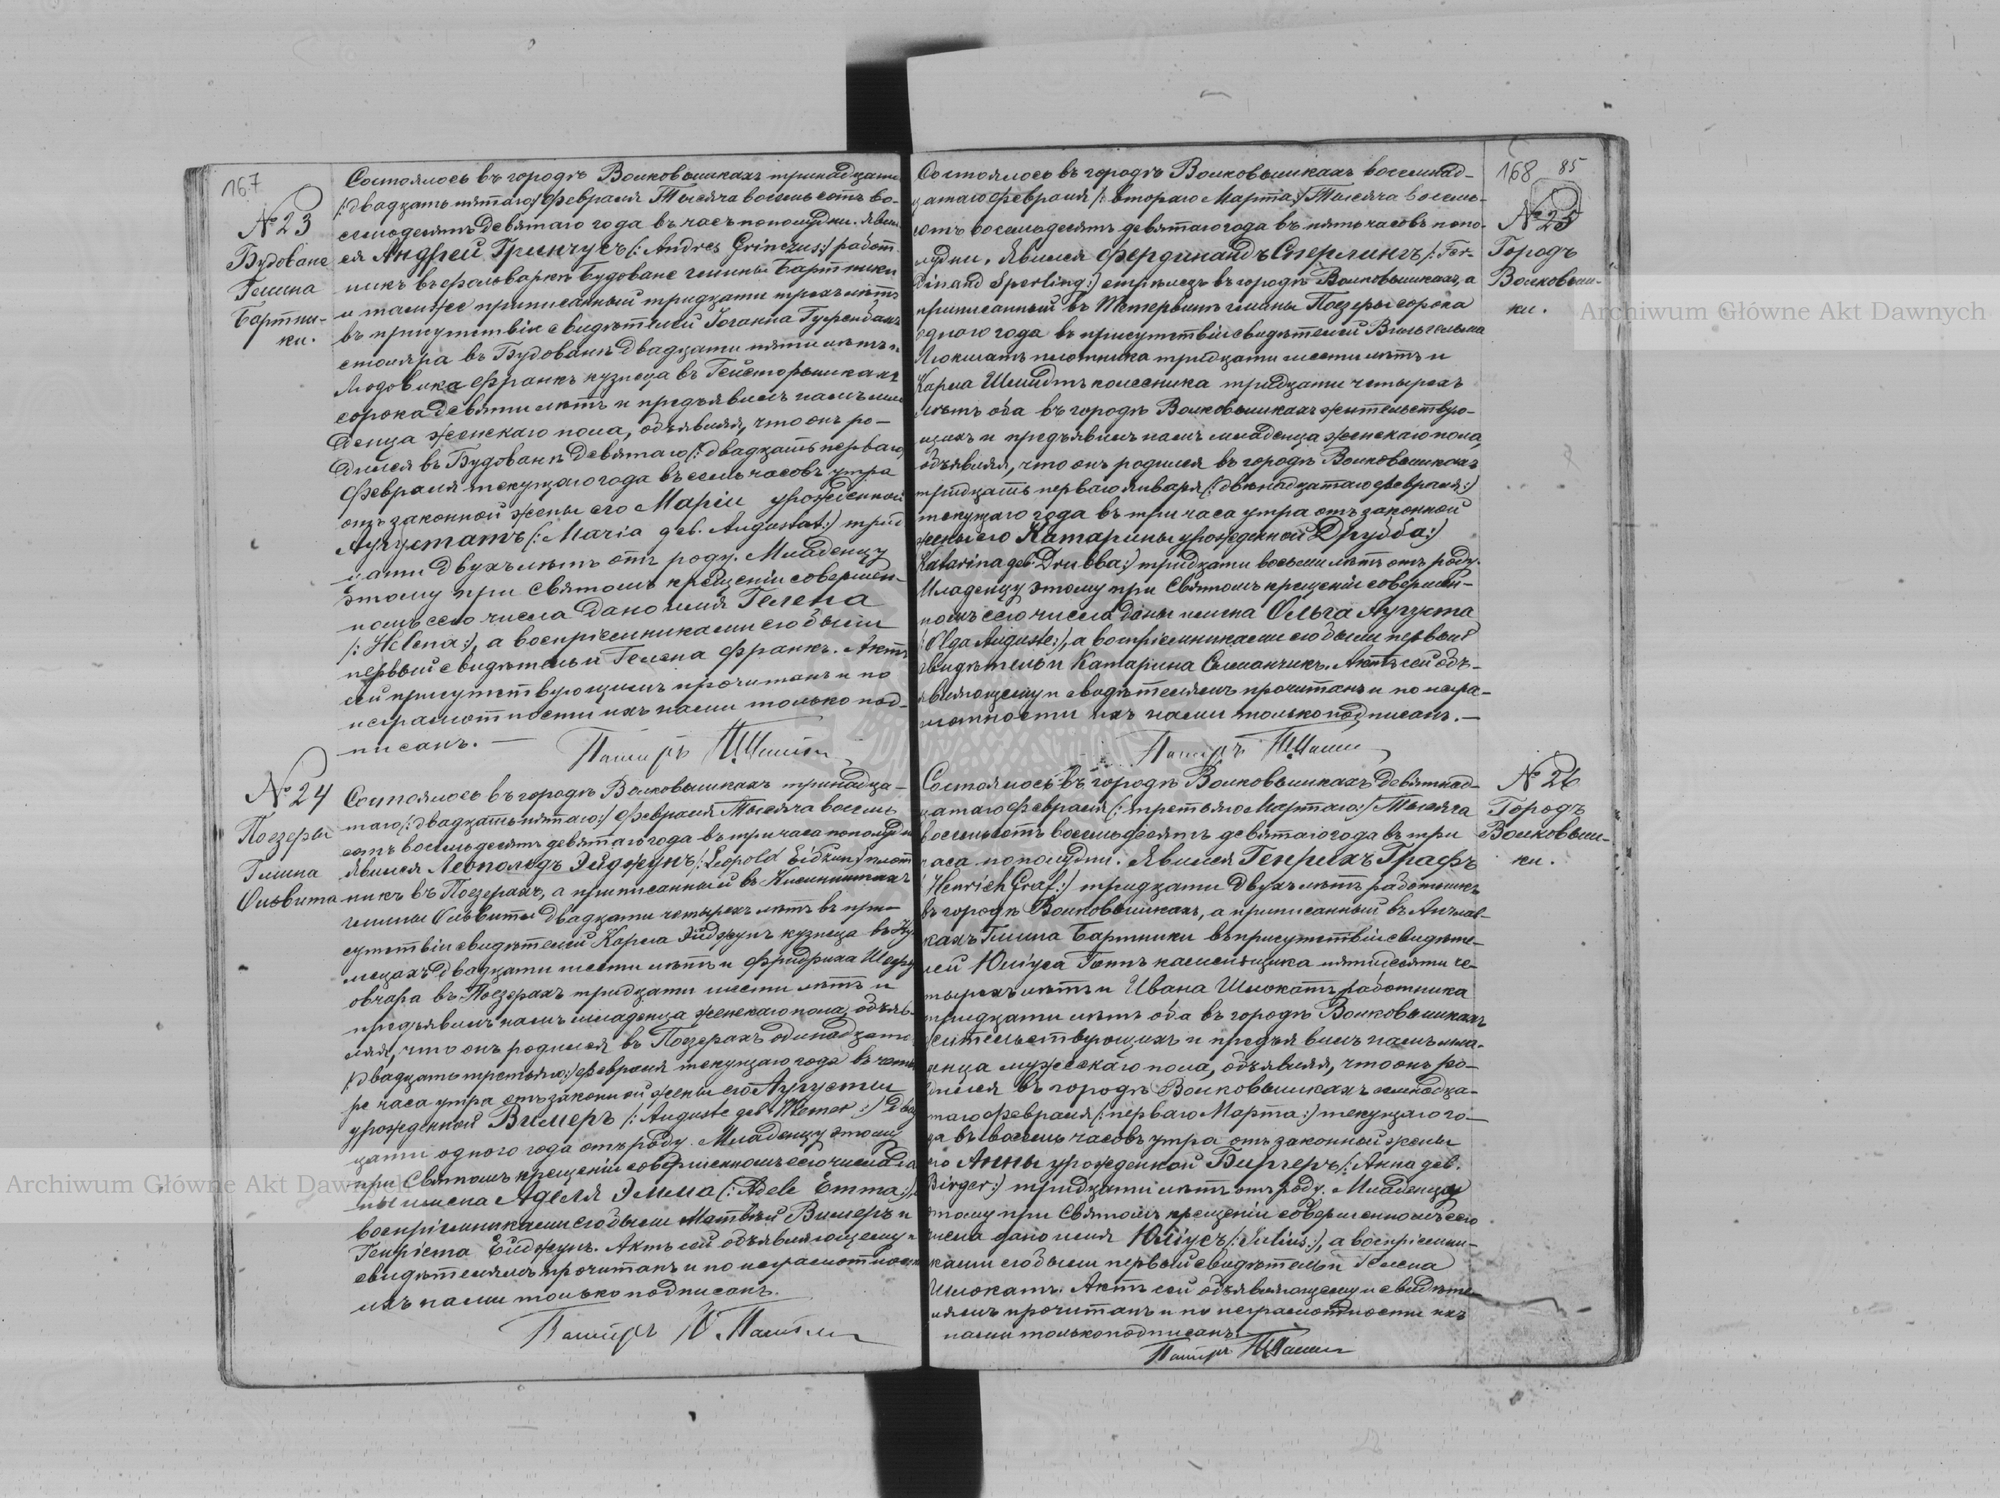 167
№ 23
Будоване
Гмина
Бартни-
ки.
Состоялось въ городѣ Волковышкахъ тринадцатаго
/:двадцать пятаго:/ Февраля Тысяча восемь сотъ во-
семьдесятъ девятаго года въ часъ пополудни. Явил-
ся Андрей Гринчусъ /:Andres Grinczus:/ работ-
никъ въ фольваркѣ Будоване гмины Бартники
и тамже приписанный тридцати трехъ лѣтъ
въ присутствіи свидѣтелей Іоганна
столяра въ Будованѣ двадцати пяти лѣтъ и
Людовика Франкъ кузнеца въ
сорока девяти лѣтъ и предъявилъ намъ мла-
денца женскаго пола, объявляя, что онъ ро-
дился въ Будованѣ девятаго /:двадцать перваго:/
Февраля текущаго года въ семь часовъ утра
отъ законной жены его Маріи урожденной
Аугустатъ /:Maria geb. Augustat:/ трид-
цати двухъ лѣтъ отъ роду. Младенцу
этому при Святомъ крещеніи совершен-
номъ сего числа дано имя Гелена
/:Helena:/, а воспріемниками его были
первый свидѣтель и Гелена Франкъ. Актъ
сей присутствующимъ прочитанъ и по
неграмотности ихъ нами только под-
писанъ. —
Пасторъ
№ 24
Поезеры
Гмина
Ольвита
Состоялось въ городѣ Волковышкахъ тринадца-
таго /:двадцать пятаго:/ Февраля Тысяча восемь
сотъ восемьдесятъ девятаго года въ три часа пополудни
Явился Леопольдъ Эйдкунъ /:Leopold Eidkun:/ плот-
никъ въ Поезерахъ, а приписанный въ
гмины Ольвита двадцати четырехъ лѣтъ въ при-
сутствіи свидѣтелей Карла Эйдкунъ кузнеца въ
двадцати шести лѣтъ и Фридриха
овчара въ Поезерахъ тридцати шести лѣтъ и
предъявилъ намъ младенца женскаго пола, объяв-
ляя, что онъ родился въ Поезерахъ одинадцатаго
/:двадцать третьяго:/ Февраля текущаго года въ четы-
ре часа утра отъ законной жены его Аугусты
урожденной Вимеръ /:Auguste geb. Wiemer:/ двад-
цати одного года отъ роду. Младенцу этому
при Святомъ крещеніи совершенномъ сего числа да-
ны имена Аделя Эмма /:Adele Emma:/, а
воспріемниками его были Матвѣй Вимеръ и
Генріета Ейдкунъ. Актъ сей объявляющему и
свидѣтелямъ прочитанъ и по неграмотности
ихъ нами только подписанъ.
Пасторъ
168 85
№ 25
Городъ
Волковыш-
ки.
Состоялось въ городѣ Волковышкахъ восемнад-
цатаго Февраля /:втораго Марта:/ Тысяча восемь-
сотъ восемьдесятъ девятаго года въ пять часовъ попо-
лудни. Явился Фердинандъ Сперлингъ /:Fer-
dinand Sperling:/ стрѣлецъ въ городѣ Волковышкахъ, а
приписанный въ гмины Поезеры сорока
одного года въ присутствіи свидѣтелей Вильгельма
плотника тридцати шести лѣтъ и
Карла Шмидтъ колесника тридцати четырехъ
лѣтъ оба въ городѣ Волковышкахъ жительствую-
щихъ и предъявилъ намъ младенца женскаго пола,
объявляя, что онъ родился въ городѣ Волковышкахъ
тридцать перваго Января /:двѣнадцатаго Февраля:/
текущаго года въ три часа утра отъ законной
жены его Катарины урожденной Друбба:/
Katarina geb. Drubba:/ тридцати восьми лѣтъ отъ роду.
Младенцу этому при Святомъ крещеніи совершен-
номъ сего числа даны имена Ольга Аугуста
/:Olga Auguste:/, а воспріемниками его были первый
свидѣтель и Катарина Симанчикъ. Актъ сей объ-
являющему и свидѣтелямъ прочитанъ и по негра-
мотности ихъ нами только подписанъ. —
Пасторъ
№ 26
Городъ
Волковыш-
ки.
Состоялось въ городѣ Волковышкахъ девятнад-
цатаго Февраля /:третьяго Марта:/ Тысяча
восемьсотъ восемьдесятъ девятаго года въ три
часа пополудни. Явился Генрихъ Графъ
/:Henrich Graf:/ тридцати двухъ лѣтъ работникъ
въ городѣ Волковышкахъ, а приписанный въ
Гмина Бартники въ присутствіи свидѣте-
лей Юліуса Готъ каменьщика пятидесяти че-
тырехъ лѣтъ и Ивана Шлокатъ работника
тридцати лѣтъ оба въ городѣ Волковышкахъ
жительствующихъ и предъявилъ намъ мла-
денца мужескаго пола, объявляя, что онъ ро-
дился въ городѣ Волковышкахъ семнадца-
таго Февраля /:перваго Марта:/ текущаго го-
да въ восемь часовъ утра отъ законной жены
его Анны урожденной Биргеръ /:Анна geb.
Birger:/ тридцати лѣтъ отъ роду. Младенцу
этому при Святомъ крещеніи совершенномъ сего
числа дано имя Юліусъ /:Julius:/, а воспріемни-
ками его были первый свидѣтель и Гелена
Шлокатъ. Актъ сей объявляющему и свидѣте-
лямъ прочитанъ и по неграмотности ихъ
нами только подписанъ.
Пасторъ
Archiwum Główne Akt Dawnych
Archiwum Główne Akt Dawnych